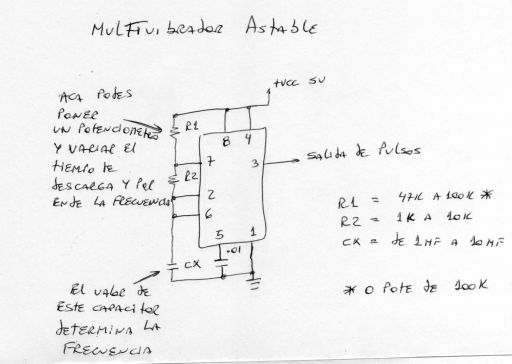 MULTIVIBRADOR ASTABLE
+VCC 5V
ACA PODES
PONER
UN POTENCIOMETRO
Y VARIAR EL
TIEMPO DE
DESCARGA Y POR
ENDE LA FRECUENCIA
R1
8 4
7
3
SALIDA DE PULSOS
R2
2
6
5 1
CX
.01
R1 = 47K A 100K *
R2 = 1K A 10K
CX = DE 1MF A 10MF
* O POTE DE 100K
EL VALOR DE
ESTE CAPACITOR
DETERMINA LA
FRECUENCIA